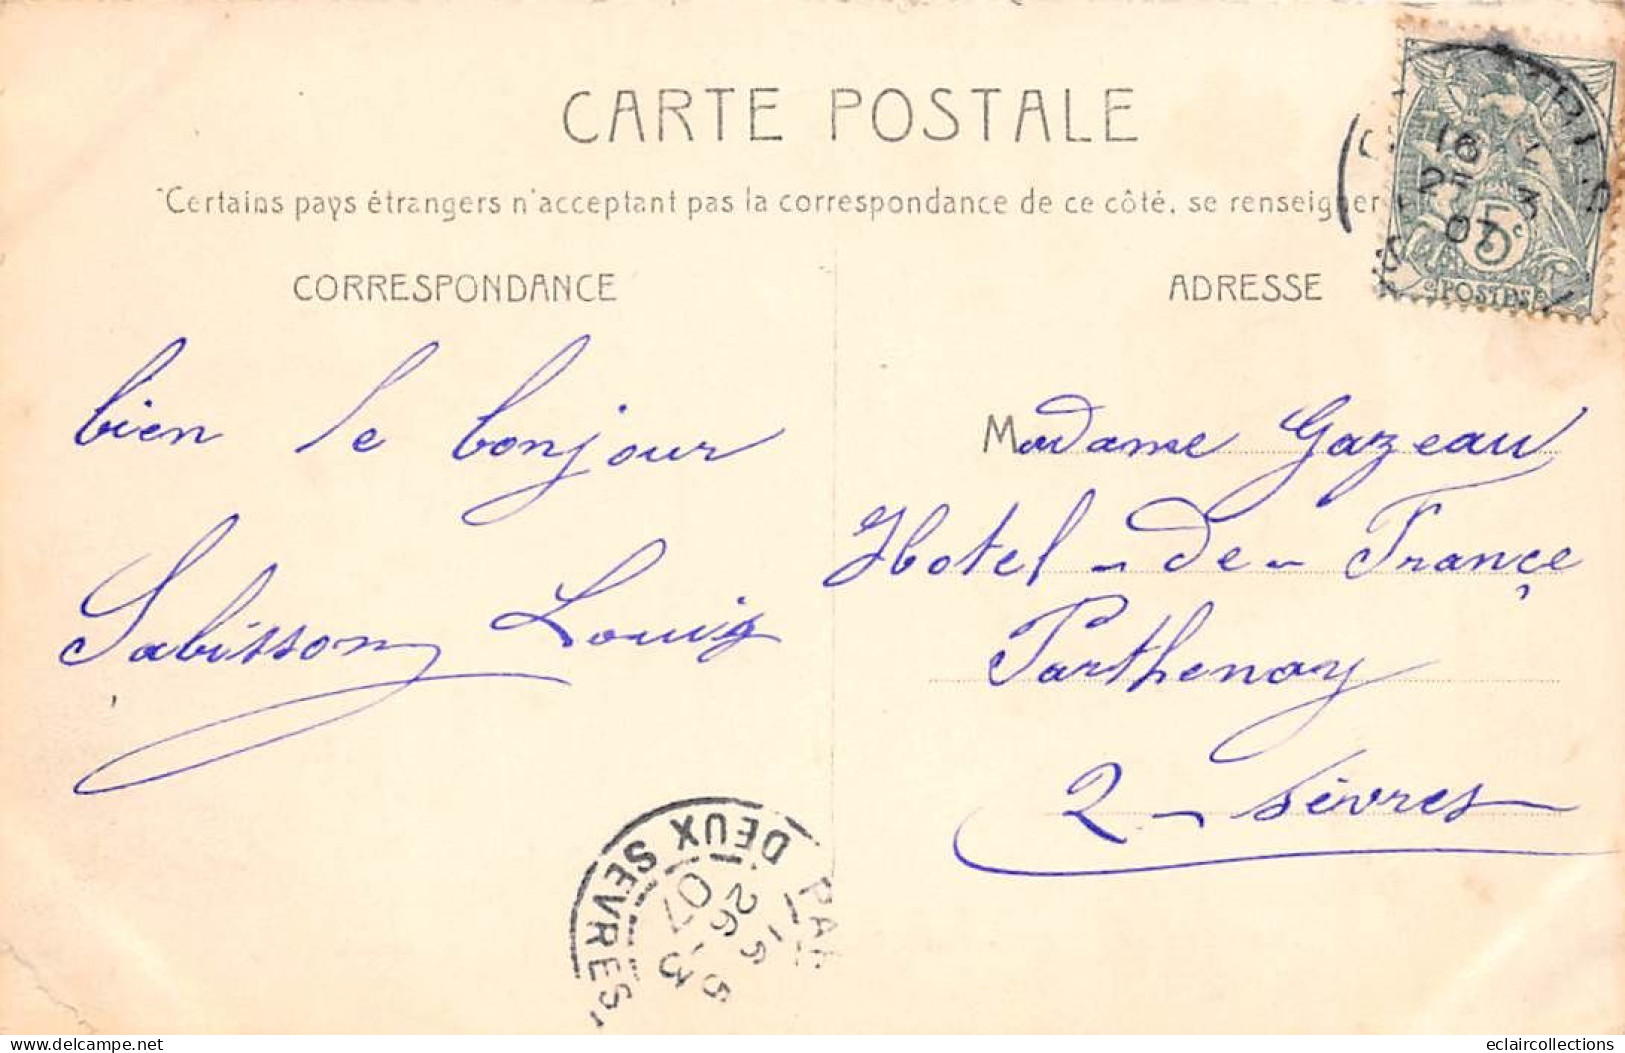 CARTE POSTALE
Certains pays étrangers n'acceptant pas la correspondance de ce côté, se renseigner
CORRESPONDANCE
ADRESSE
bien le bonjour
Sabisson Louis
Madame Gazeau
Hotel - de - Françe
Parthenay
2 - Sèvres
16
25 3
07
5c
POSTES
DEUX SEVRES
26 - 3
07
eclaircollections